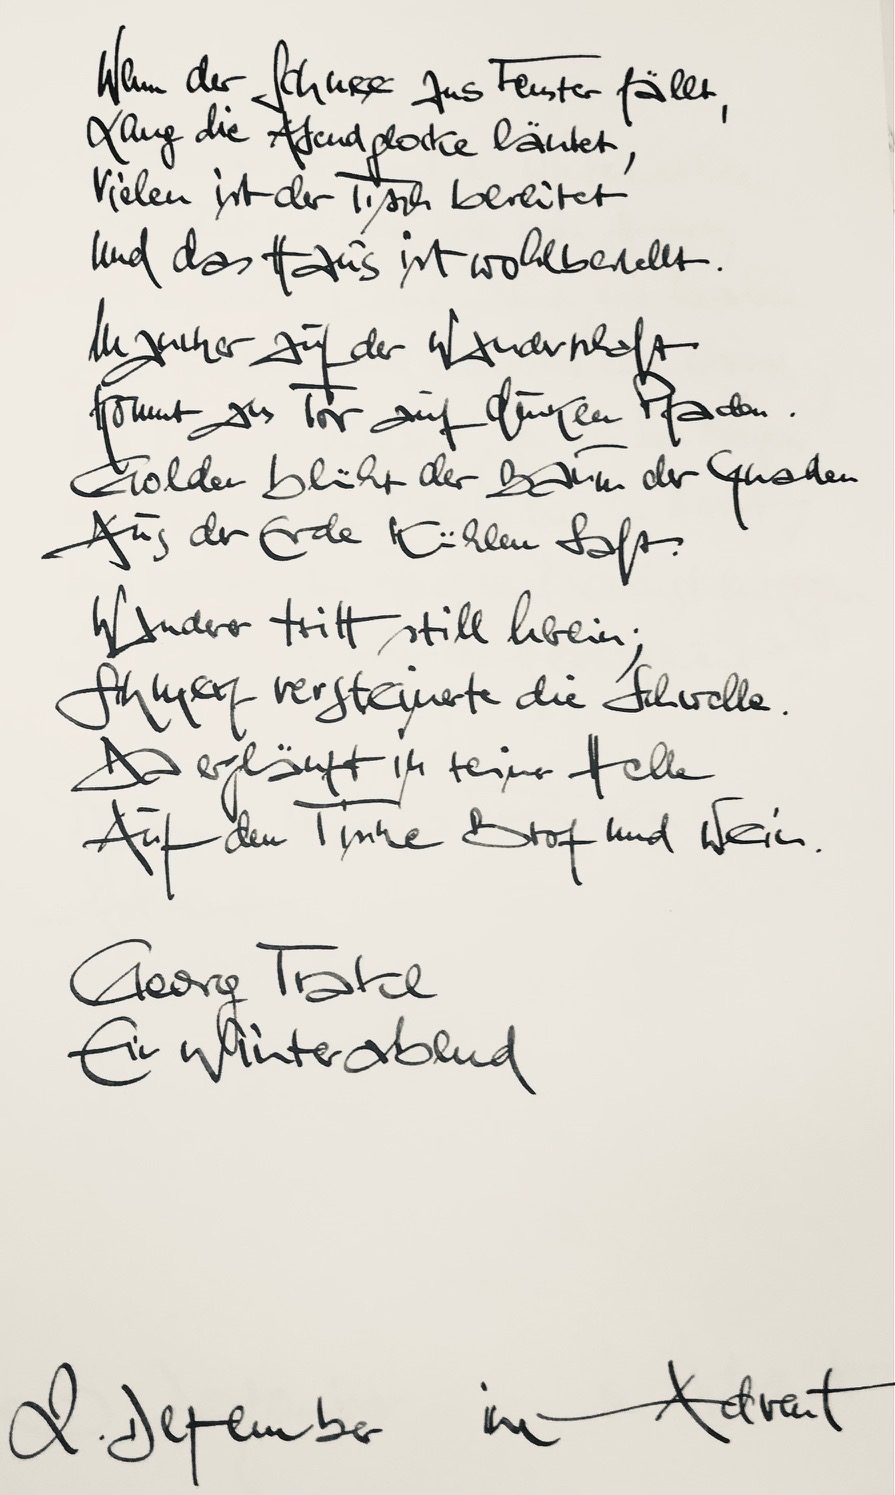 Wenn der Schnee ans Fenster fällt,
Lang die Abendglocke läutet,
Vielen ist der Tisch bereitet
Und das Haus ist wohlbestellt.
Mancher auf der Wanderschaft
Kommt ans Tor auf dunklen Pfaden.
Golden blüht der Baum der Gnaden
Aus der Erde kühlem Saft.
Wanderer tritt still herein;
Schmerz versteinerte die Schwelle.
Da erglänzt in reiner Helle
Auf dem Tische Brot und Wein.
Georg Trakl
Ein Winterabend
2. Dezember im Advent